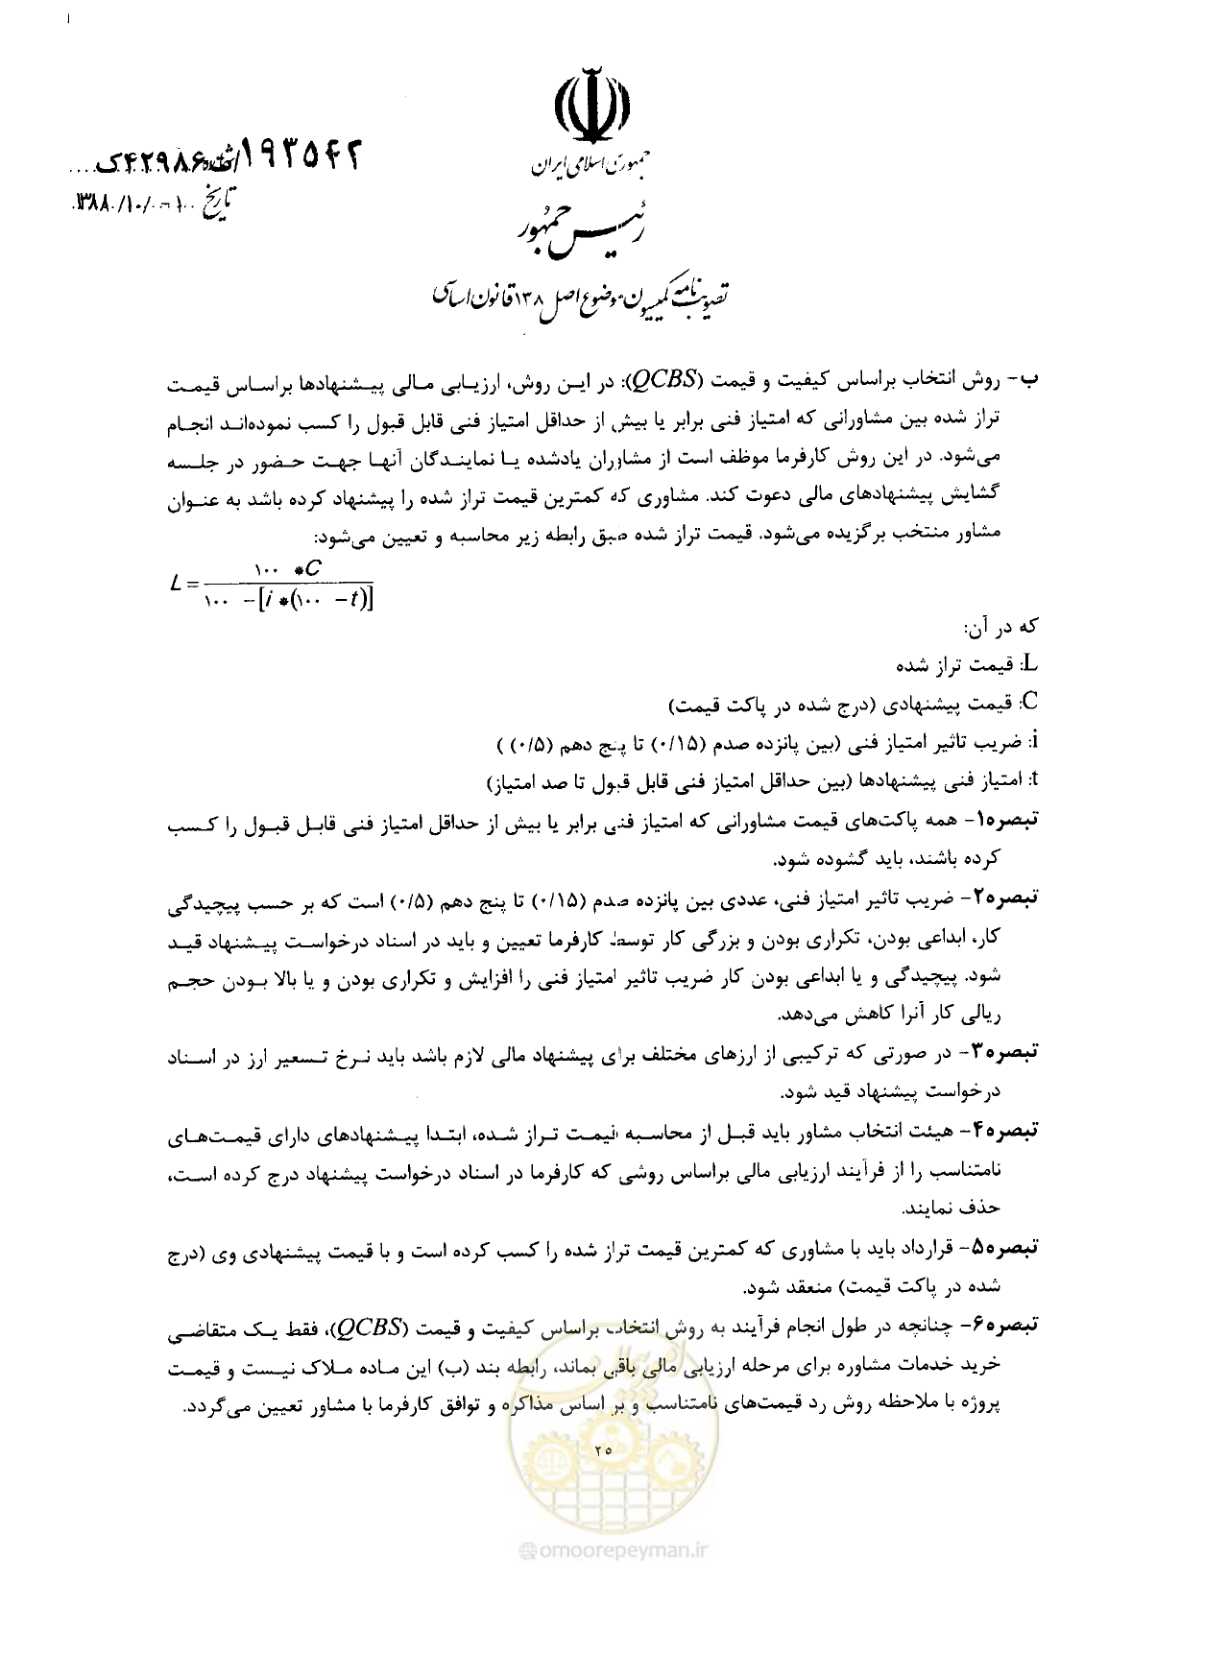 جمهوری اسلامی ایران
رئیس جمهور
تصویب‌نامه کمیسیون موضوع اصل ۱۳۸ قانون اساسی
۱۹۳۵۴۲/ت۴۲۹۸۶ک
تاریخ ۱۳۸۸/۱۰/۱۰
ب- روش انتخاب براساس کیفیت و قیمت (QCBS): در این روش، ارزیابی مالی پیشنهادها براساس قیمت
تراز شده بین مشاورانی که امتیاز فنی برابر یا بیش از حداقل امتیاز فنی قابل قبول را کسب نموده‌اند انجام
می‌شود. در این روش کارفرما موظف است از مشاوران یادشده یا نمایندگان آنها جهت حضور در جلسه
گشایش پیشنهادهای مالی دعوت کند. مشاوری که کمترین قیمت تراز شده را پیشنهاد کرده باشد به عنوان
مشاور منتخب برگزیده می‌شود. قیمت تراز شده طبق رابطه زیر محاسبه و تعیین می‌شود:
L = ۱۰۰ * C / ۱۰۰ - [i * (۱۰۰ - t)]
که در آن:
L: قیمت تراز شده
C: قیمت پیشنهادی (درج شده در پاکت قیمت)
i: ضریب تاثیر امتیاز فنی (بین پانزده صدم (۰/۱۵) تا پنج دهم (۰/۵) )
t: امتیاز فنی پیشنهادها (بین حداقل امتیاز فنی قابل قبول تا صد امتیاز)
تبصره۱- همه پاکت‌های قیمت مشاورانی که امتیاز فنی برابر یا بیش از حداقل امتیاز فنی قابل قبول را کسب
کرده باشند، باید گشوده شود.
تبصره۲- ضریب تاثیر امتیاز فنی، عددی بین پانزده صدم (۰/۱۵) تا پنج دهم (۰/۵) است که بر حسب پیچیدگی
کار، ابداعی بودن، تکراری بودن و بزرگی کار توسط کارفرما تعیین و باید در اسناد درخواست پیشنهاد قید
شود. پیچیدگی و یا ابداعی بودن کار ضریب تاثیر امتیاز فنی را افزایش و تکراری بودن و یا بالا بودن حجم
ریالی کار آنرا کاهش می‌دهد.
تبصره۳- در صورتی که ترکیبی از ارزهای مختلف برای پیشنهاد مالی لازم باشد باید نرخ تسعیر ارز در اسناد
درخواست پیشنهاد قید شود.
تبصره۴- هیئت انتخاب مشاور باید قبل از محاسبه قیمت تراز شده، ابتدا پیشنهادهای دارای قیمت‌های
نامتناسب را از فرآیند ارزیابی مالی براساس روشی که کارفرما در اسناد درخواست پیشنهاد درج کرده است،
حذف نمایند.
تبصره۵- قرارداد باید با مشاوری که کمترین قیمت تراز شده را کسب کرده است و با قیمت پیشنهادی وی (درج
شده در پاکت قیمت) منعقد شود.
تبصره۶- چنانچه در طول انجام فرآیند به روش انتخاب براساس کیفیت و قیمت (QCBS)، فقط یک متقاضی
خرید خدمات مشاوره برای مرحله ارزیابی مالی باقی بماند، رابطه بند (ب) این ماده ملاک نیست و قیمت
پروژه با ملاحظه روش رد قیمت‌های نامتناسب و بر اساس مذاکره و توافق کارفرما با مشاور تعیین می‌گردد.
۲۵
@omoorepeyman.ir